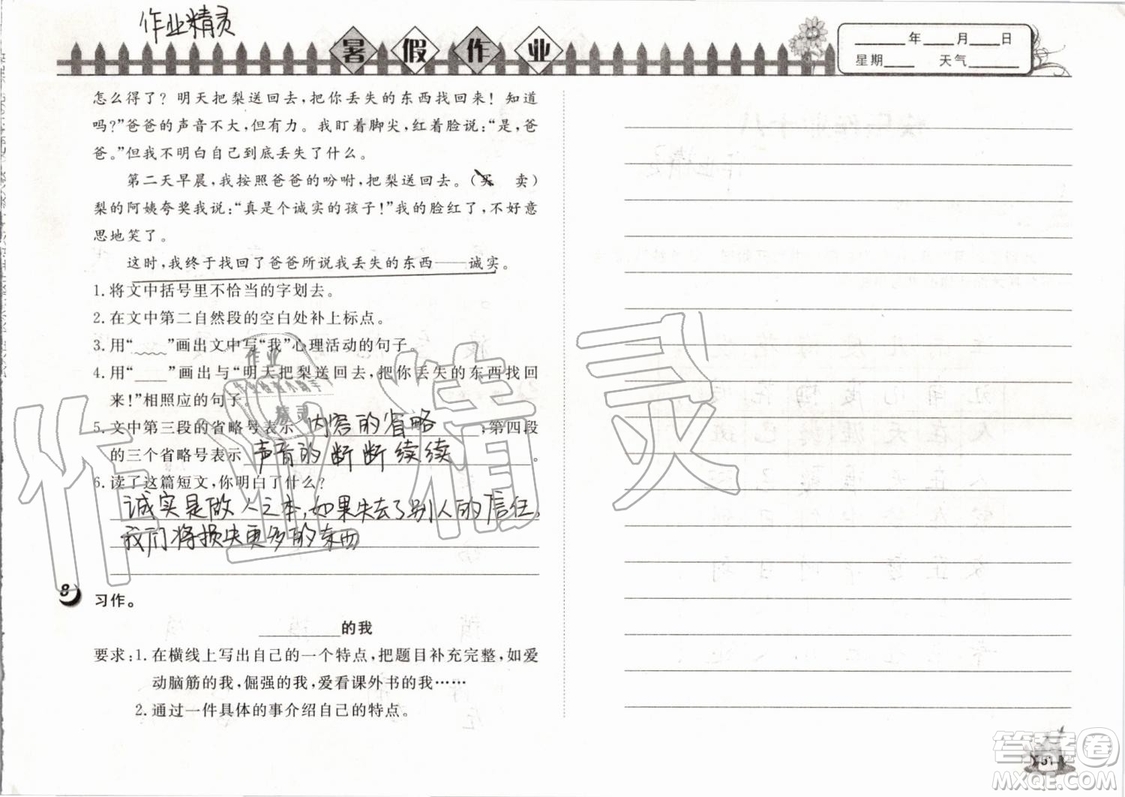 作业精灵
暑假作业
____年____月____日
星期____ 天气______
怎么得了？明天把梨送回去，把你丢失的东西找回来！知道
吗？”爸爸的声音不大，但有力。我盯着脚尖，红着脸说：“是，爸
爸。”但我不明白自己到底丢失了什么。
第二天早晨，我按照爸爸的吩咐，把梨送回去。（买 卖）
梨的阿姨夸奖我说：“真是个诚实的孩子！”我的脸红了，不好意
思地笑了。
这时，我终于找回了爸爸所说我丢失的东西——诚实。
1. 将文中括号里不恰当的字划去。
2. 在文中第二自然段的空白处补上标点。
3. 用“____”画出文中写“我”心理活动的句子。
4. 用“____”画出与“明天把梨送回去，把你丢失的东西找回
来！”相照应的句子。
5. 文中第三段的省略号表示 内容的省略 ，第四段
的三个省略号表示 声音的断断续续 。
6. 读了这篇短文，你明白了什么？
诚实是做人之本，如果失去了别人的信任，
我们将损失更多的东西
8 习作。
________的我
要求：1. 在横线上写出自己的一个特点，把题目补充完整，如爱
动脑筋的我，倔强的我，爱看课外书的我……
2. 通过一件具体的事介绍自己的特点。
作业精灵
作业
精灵
答案圈
MXQE.COM
51